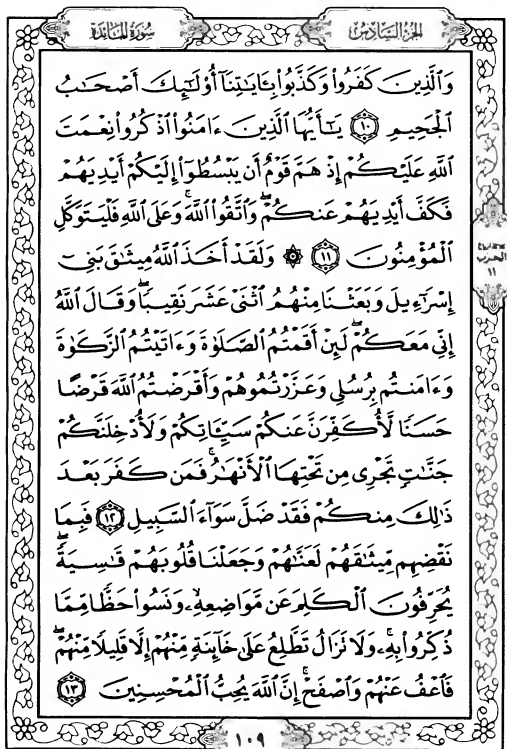 سُورَةُ المَائدَة
الجُزءُ السَّادِسُ
وَٱلَّذِينَ كَفَرُوا۟ وَكَذَّبُوا۟ بِـَٔايَـٰتِنَآ أُو۟لَـٰٓئِكَ أَصْحَـٰبُ
ٱلْجَحِيمِ ١٠ يَـٰٓأَيُّهَا ٱلَّذِينَ ءَامَنُوا۟ ٱذْكُرُوا۟ نِعْمَتَ
ٱللَّهِ عَلَيْكُمْ إِذْ هَمَّ قَوْمٌ أَن يَبْسُطُوٓا۟ إِلَيْكُمْ أَيْدِيَهُمْ
فَكَفَّ أَيْدِيَهُمْ عَنكُمْ ۖ وَٱتَّقُوا۟ ٱللَّهَ ۚ وَعَلَى ٱللَّهِ فَلْيَتَوَكَّلِ
ٱلْمُؤْمِنُونَ ١١ ۞ وَلَقَدْ أَخَذَ ٱللَّهُ مِيثَـٰقَ بَنِىٓ
إِسْرَٰٓءِيلَ وَبَعَثْنَا مِنْهُمُ ٱثْنَىْ عَشَرَ نَقِيبًا ۖ وَقَالَ ٱللَّهُ
إِنِّى مَعَكُمْ ۖ لَئِنْ أَقَمْتُمُ ٱلصَّلَوٰةَ وَءَاتَيْتُمُ ٱلزَّكَوٰةَ
وَءَامَنتُم بِرُسُلِى وَعَزَّرْتُمُوهُمْ وَأَقْرَضْتُمُ ٱللَّهَ قَرْضًا
حَسَنًا لَّأُكَفِّرَنَّ عَنكُمْ سَيِّـَٔاتِكُمْ وَلَأُدْخِلَنَّكُمْ
جَنَّـٰتٍ تَجْرِى مِن تَحْتِهَا ٱلْأَنْهَـٰرُ ۚ فَمَن كَفَرَ بَعْدَ
ذَٰلِكَ مِنكُمْ فَقَدْ ضَلَّ سَوَآءَ ٱلسَّبِيلِ ١٢ فَبِمَا
نَقْضِهِم مِّيثَـٰقَهُمْ لَعَنَّـٰهُمْ وَجَعَلْنَا قُلُوبَهُمْ قَـٰسِيَةً ۖ
يُحَرِّفُونَ ٱلْكَلِمَ عَن مَّوَاضِعِهِۦ ۙ وَنَسُوا۟ حَظًّا مِّمَّا
ذُكِّرُوا۟ بِهِۦ ۚ وَلَا تَزَالُ تَطَّلِعُ عَلَىٰ خَآئِنَةٍ مِّنْهُمْ إِلَّا قَلِيلًا مِّنْهُمْ ۖ
فَٱعْفُ عَنْهُمْ وَٱصْفَحْ ۚ إِنَّ ٱللَّهَ يُحِبُّ ٱلْمُحْسِنِينَ ١٣
الحزب
١١
١٠٩